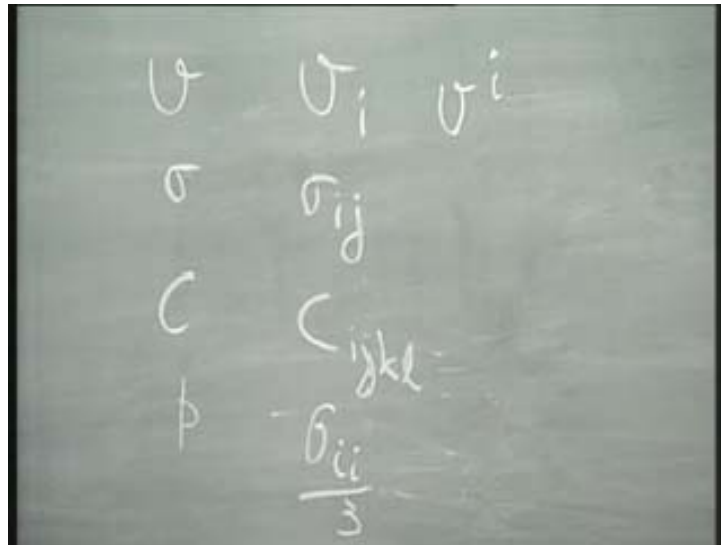 v v_i v^i
σ σ_{ij}
C C_{ijkl}
p -σ_{ii}/3